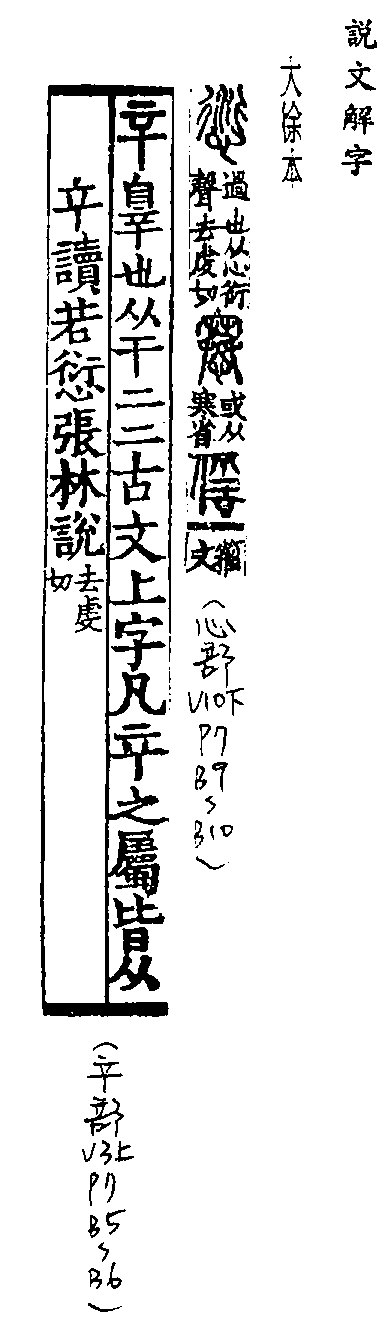 説文解字
大徐本
愆過也从心衍聲去虔切 或从寒省 籀文
(心部V10下P7B9~B10)
䇂辠也从干二二古文上字凡䇂之屬皆从
䇂讀若愆張林說去虔切
(䇂部V3上P7B5~B6)